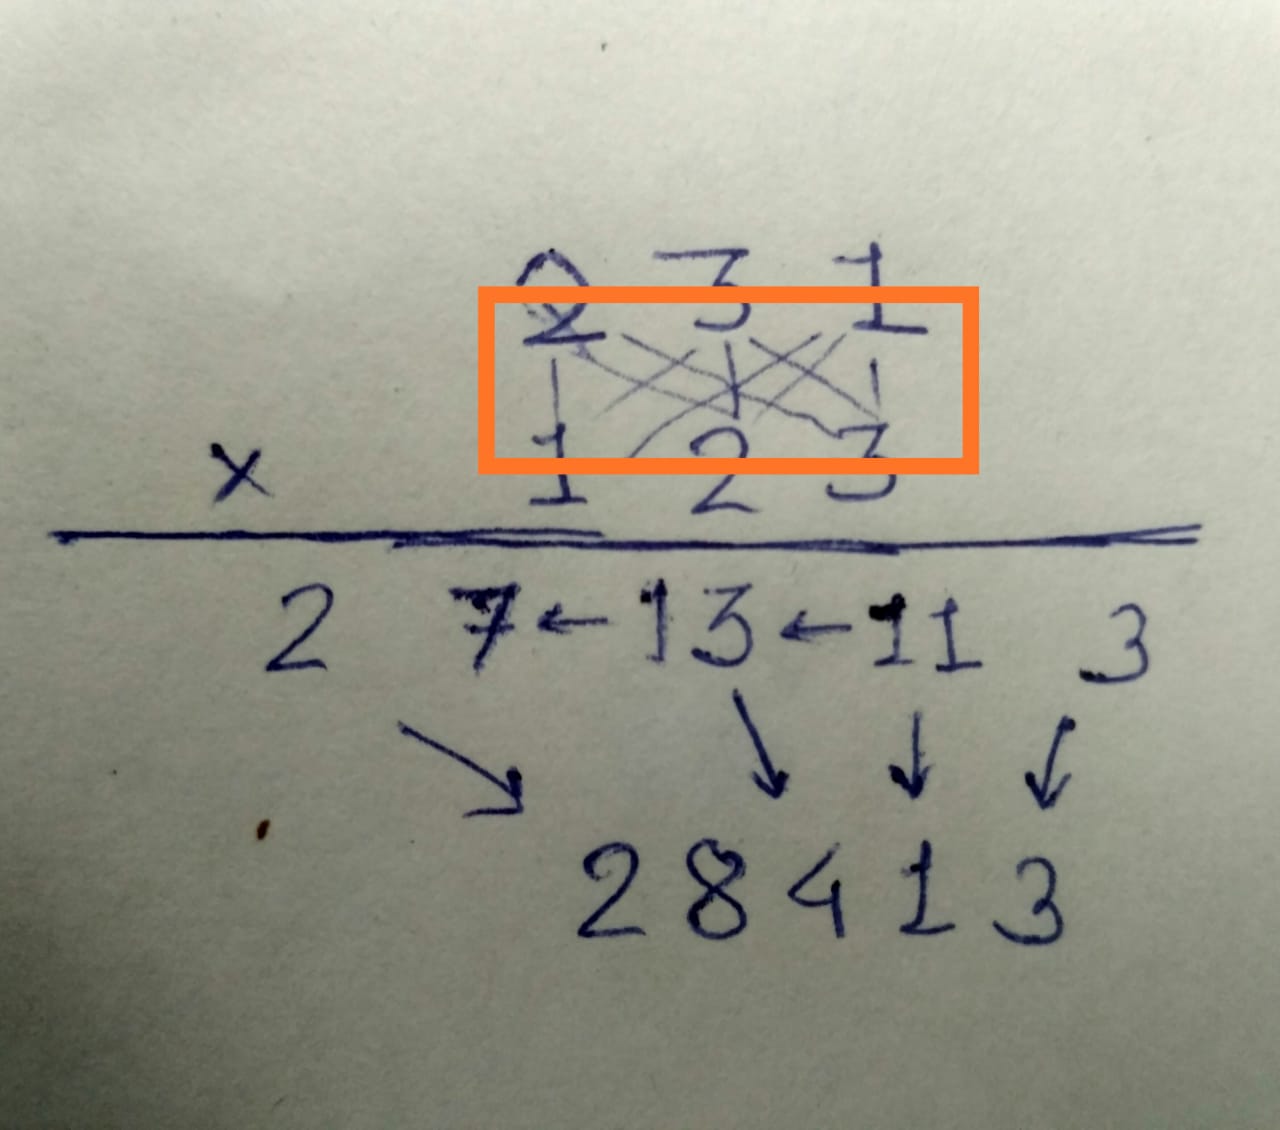 2 3 1
x 1 2 3
2 7 ← 13 ← 11 3
2 8 4 1 3